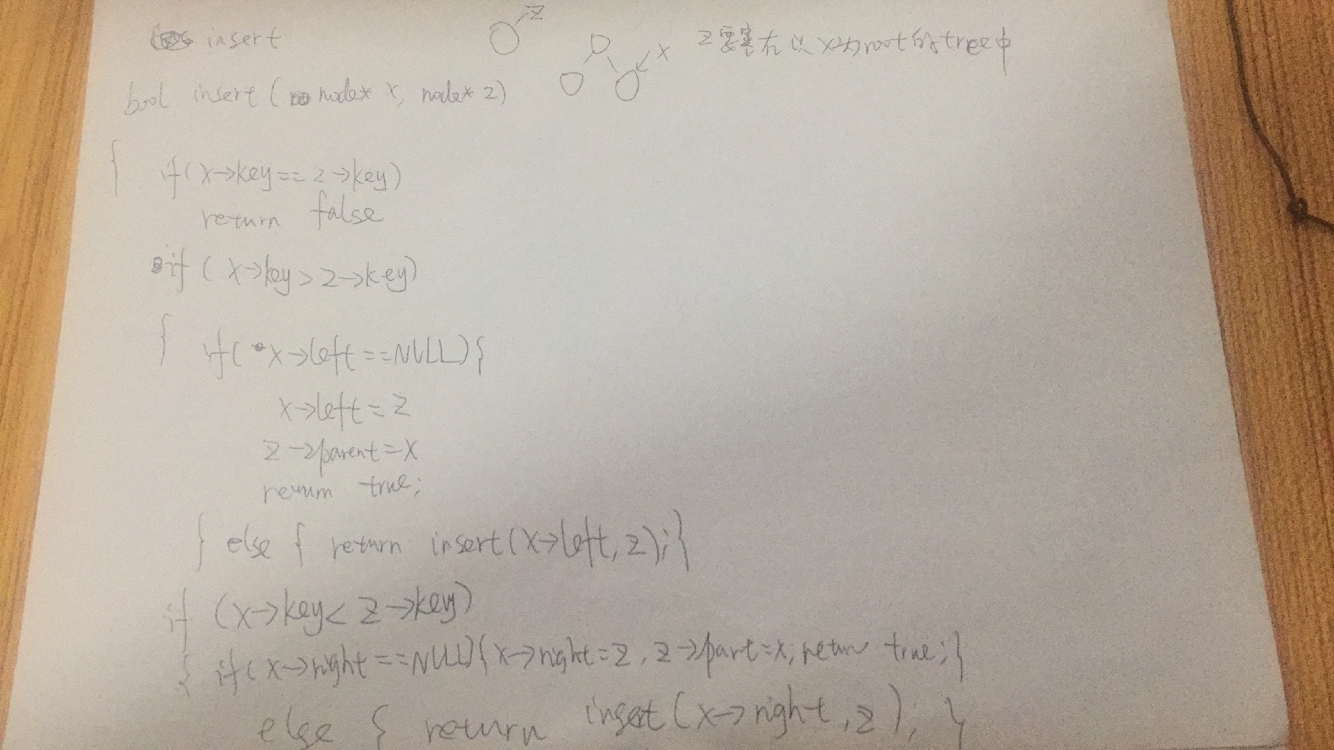 insert
z
x
z要塞在以x为root的tree中
bool insert (node* x, node* z)
{ if(x->key==z->key)
return false
if (x->key>z->key)
{ if(x->left==NULL){
x->left=z
z->parent=x
return true;
} else { return insert(x->left,z);}
if (x->key<z->key)
{ if(x->right==NULL){x->right=z,z->part=x;return true;}
else { return inset(x->right,z); }